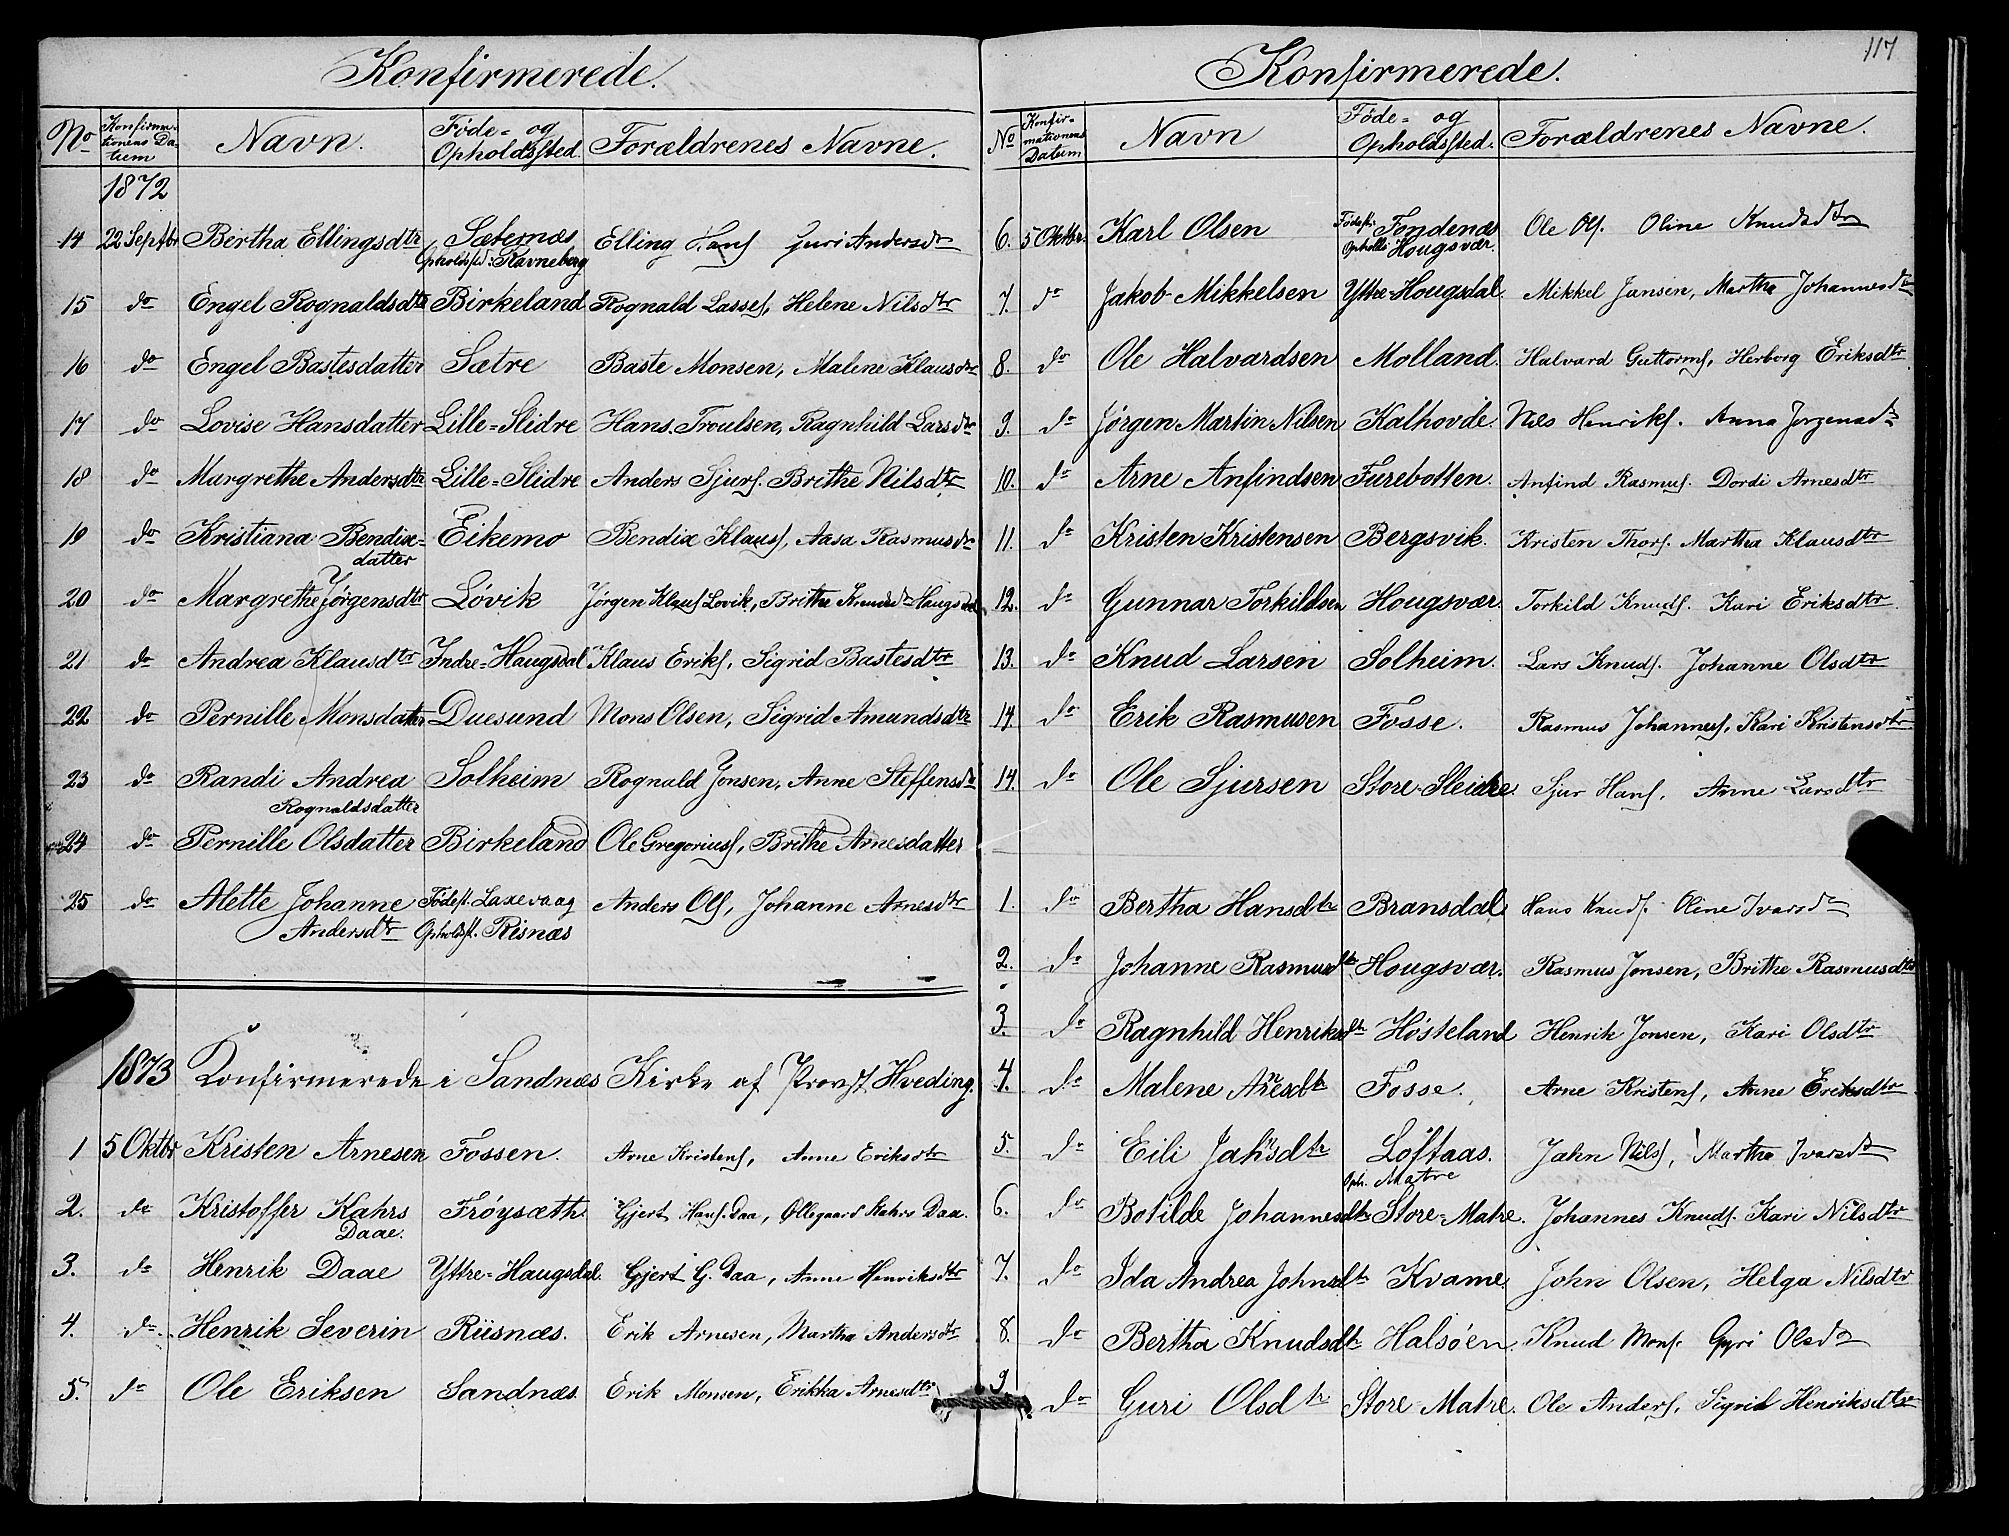 Konfirmerede.
No Konfirma- tionens Da- tum Navn. Føde- og Opholdssted. Forældrenes Navne.
1872
14 22 Septbr Bertha Ellingsdtr Sæternæs Elling Hans. Guri Andersdtr
Opholdssted: Ravneberg
15 do Engel Rognaldsdtr Birkeland Rognald Lasses. Helene Nilsdtr
16 do Engel Bastesdatter Sætre Baste Monsen, Malene Klausdtr
17 do Lovise Hansdatter Lille-Slidre Hans Troulsen, Ragnhild Larsdtr
18 do Margrethe Andersdtr Lille-Slidre Anders Sjurs. Brithe Nilsdtr
19 do Kristiana Bendix- Eikemo Bendix Klaus, Aasa Rasmusdtr
datter
20 do Margrethe Jørgensdtr Løvik Jørgen Klaus Lovik, Brithe Knudsdtr Haugsdal
21 do Andrea Klausdtr Indre-Haugsdal Klaus Eriks, Sigrid Bastesdtr
22 do Pernille Monsdatter Duesund Mons Olsen, Sigrid Amundsdtr
23 do Randi Andrea Solheim Rognald Jonsen, Anne Steffensdtr
Rognaldsdatter
24 do Pernille Olsdatter Birkeland Ole Gregorius, Brithe Arnesdatter
25 do Alette Johanne Fødest. Laxevaag Anders Ols, Johanne Arnesdtr
Andersdtr Opholdsst. Risnæs
1873 Konfirmerede i Sandnæs Kirke af Provst Hveding.
1 5 Oktbr Kristen Arnesen Fossen. Arne Kristens, Anne Eriksdtr
2. do Kristoffer Kahrs Frøysæth. Gjert Hans. Daa, Øllegaard Kahrs Daa.
Daae.
3. do Henrik Daae Yttre-Haugsdal. Gjert G. Daa, Anne Henriksdtr
4. do Henrik Severin Riisnæs. Erik Arnesen, Martha Andersdtr
5. do Ole Eriksen Sandnæs. Erik Monsen, Erikka Arnesdtr
117
Konfirmerede.
No Konfir- mationens Datum Navn Føde- og Opholdssted. Forældrenes Navne.
6. 5 Oktbr. Karl Olsen Fødest: Tondenæs Ole Ols. Oline Knudsdtr
Opholds Hougsvær.
7. do Jakob Mikkelsen Yttre-Hougsdal. Mikkel Jansen, Martha Johannesdtr
8. do Ole Halvardsen Molland. Halvard Guttorms, Herborg Eriksdtr
9. do Jørgen Martin Nilsen Kalhovde. Nils Henriks. Anna Jørgensdtr
10. do Arne Anfindsen Furebotten. Anfind Rasmus. Dordi Arnesdtr
11. do Kristen Kristensen Bergsvik. Kristen Thors. Martha Klausdtr
12. do Gunnar Torkildsen Hougsvær. Torkild Knuds. Kari Eriksdtr.
13. do Knud Larsen Solheim. Lars Knuds. Johanne Olsdtr
14. do Erik Rasmusen Fosse. Rasmus Johannes, Kari Kristensdtr
14. do Ole Sjursen Store-Sleidre. Sjur Hans, Anne Larsdtr
1. do Bertha Hansdtr Bransdal Hans Knuds. Oline Ivarsdtr
2. do Johanne Rasmusdtr Hougsvær. Rasmus Jonsen, Brithe Rasmusdtr
3. do Ragnhild Henriksdtr Høsteland Henrik Jonsen, Kari Olsdtr
4. do Malene Arnesdtr Fosse. Arne Kristens, Anne Eriksdtr
5. do Eili Jahnsdtr Løftaas. Jahn Nils, Martha Ivarsdtr
Oph. Matre
6. do Botilde Johannesdtr Store-Matre. Johannes Knuds. Kari Nilsdtr
7. do Ida Andrea Johnsdtr Kvame. John Olsen, Helga Nilsdtr
8. do Bertha Knudsdtr Halsøen. Knud Mons. Gyri Olsdtr
9 do Guri Olsdtr Store-Matre. Ole Anders, Sigrid Henriksdtr